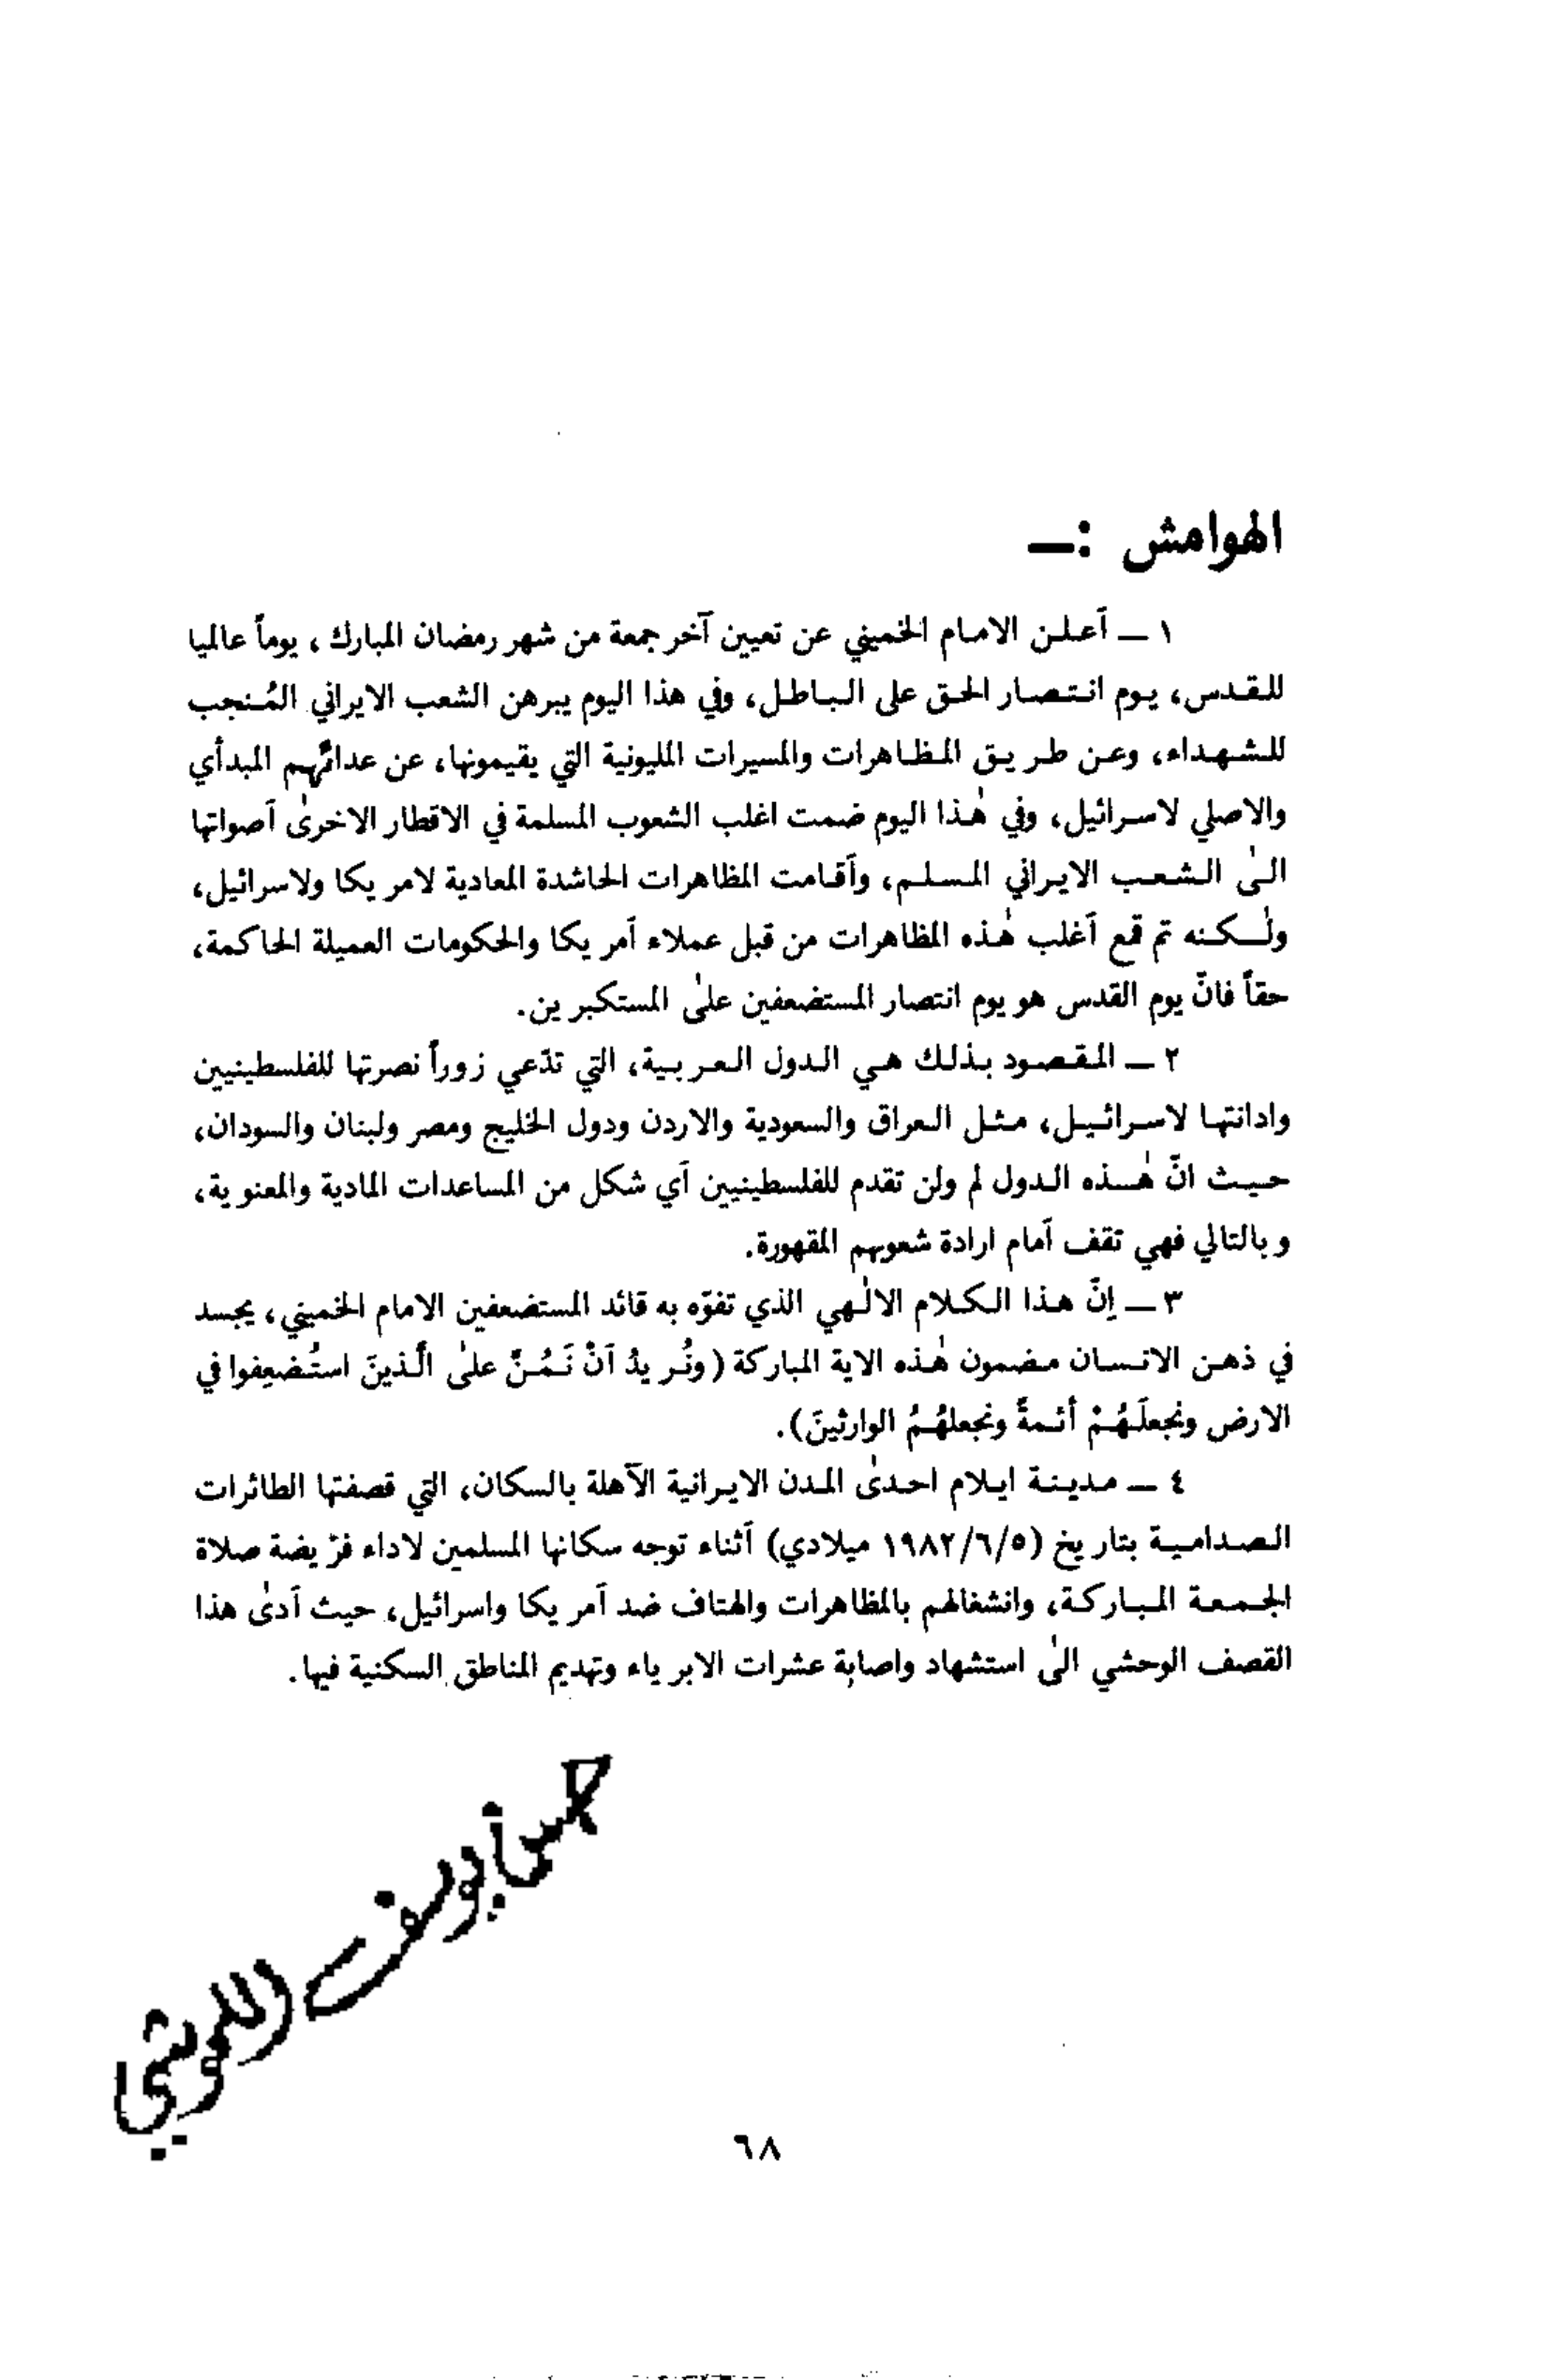 الهوامش :ـ
١ ـ أعلن الامام الخميني عن تعيين آخر جمعة من شهر رمضان المبارك ، يوماً عالميا
للقدس، يوم انتصار الحق على الباطل، وفي هذا اليوم يبرهن الشعب الايراني المُنجب
للشهداء، وعن طريق المظاهرات والمسيرات المليونية التي يقيمونها، عن عدائهم المبدأي
والاصلي لاسرائيل، وفي هٰذا اليوم ضمت اغلب الشعوب المسلمة في الاقطار الاخرىٰ أصواتها
الىٰ الشعب الايراني المسلم، وأقامت المظاهرات الحاشدة المعادية لامريكا ولاسرائيل،
ولٰكنه تم قمع أغلب هٰذه المظاهرات من قبل عملاء أمريكا والحكومات العميلة الحاكمة،
حقاً فانّ يوم القدس هو يوم انتصار المستضعفين علىٰ المستكبرين.
٢ ـ المقصود بذلك هي الدول العربية، التي تدّعي زوراً نصرتها للفلسطينيين
وادانتها لاسرائيل، مثل العراق والسعودية والاردن ودول الخليج ومصر ولبنان والسودان،
حيث انّ هٰذه الدول لم ولن تقدم للفلسطينيين أي شكل من المساعدات المادية والمعنوية،
وبالتالي فهي تقف أمام ارادة شعوبهم المقهورة.
٣ ـ إنّ هذا الكلام الالٰهي الذي تفوّه به قائد المستضعفين الامام الخميني، يجسد
في ذهن الانسان مضمون هٰذه الاية المباركة (ونُريدُ اَنْ نَمُنَّ علىٰ الَّذينَ استُضعِفوا في
الارض ونجعلَهُمْ أئمةً ونجعلهُمُ الوارثينَ).
٤ ـ مدينة ايلام احدىٰ المدن الايرانية الآهلة بالسكان، التي قصفتها الطائرات
الصدامية بتاريخ (١٩٨٢/٦/٥ ميلادي) أثناء توجه سكانها المسلمين لاداء فريضة صلاة
الجمعة المباركة، وانشغالهم بالمظاهرات والهتاف ضد أمريكا واسرائيل، حيث أدىٰ هذا
القصف الوحشي الىٰ استشهاد واصابة عشرات الابرياء وتهديم المناطق السكنية فيها.
٦٨